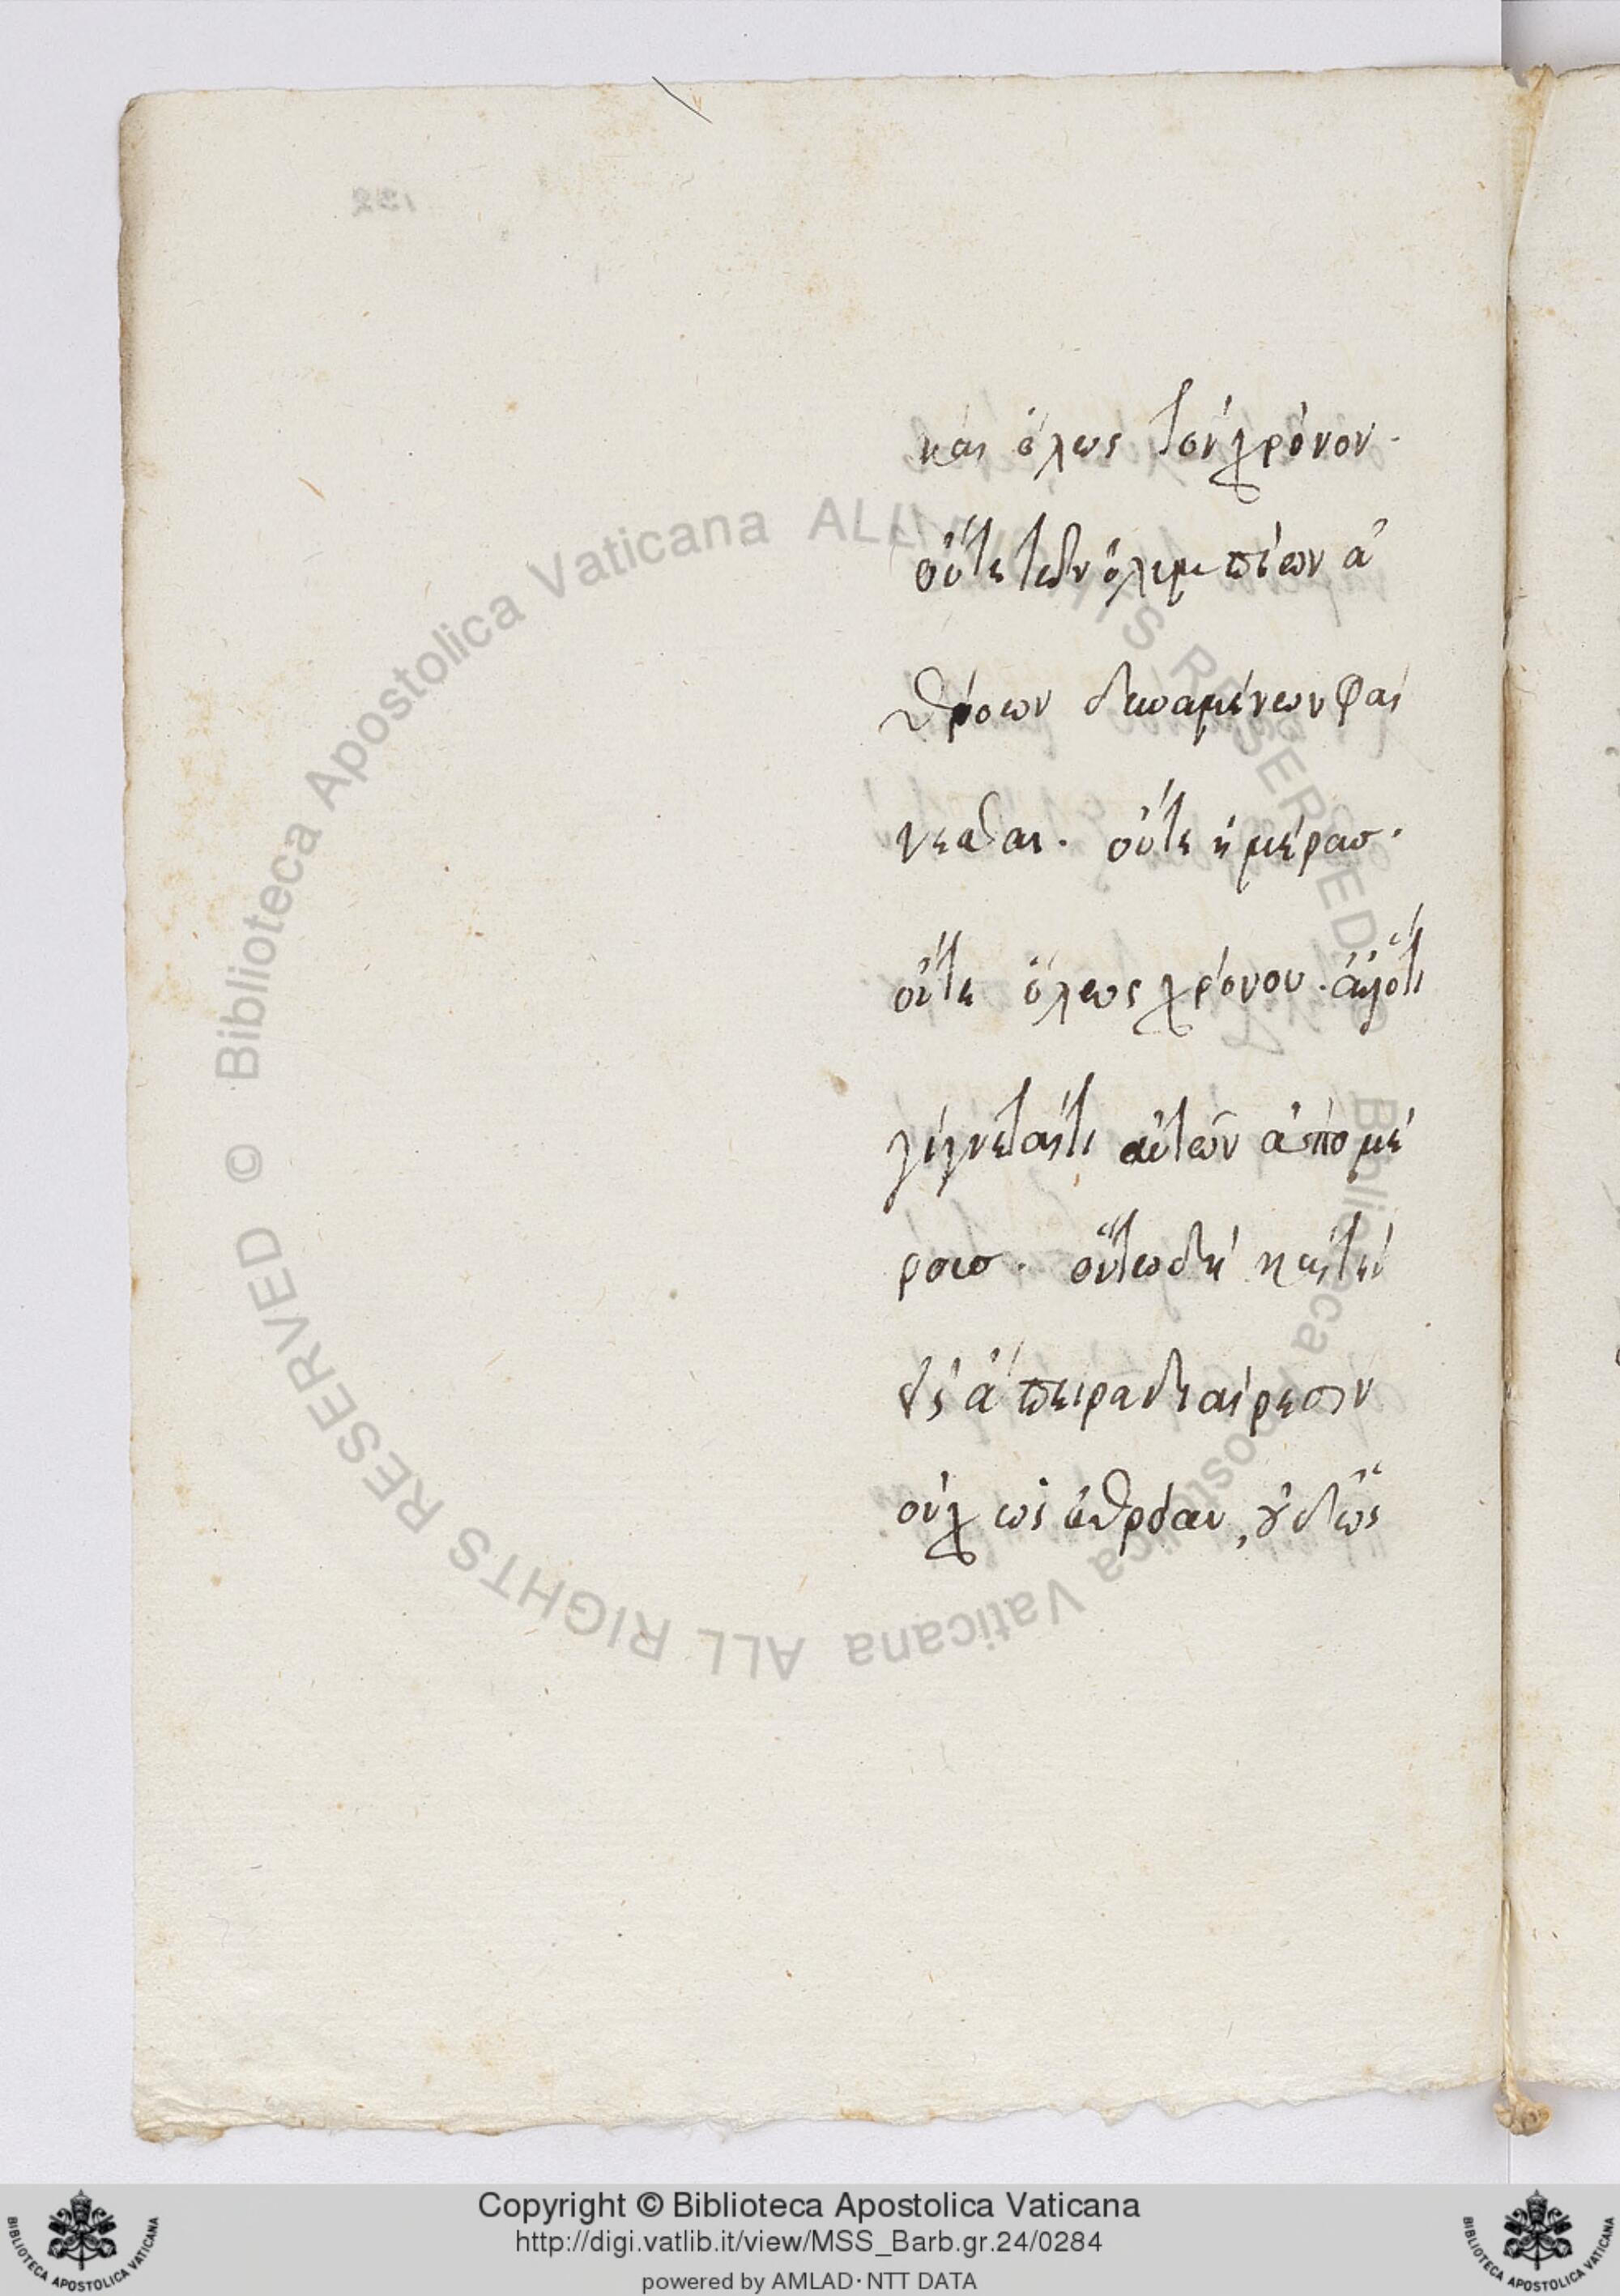 καὶ ὅλως τὸν χρόνον·
οὔτε τῶν ὀλυμπίων ἀ
θρόων δυναμένων φαί
νεσθαι· οὔτε ἡμέρασ·
οὔτε ὅλως χρόνου· ἀλλ' ὅτι
γίγνεταί τι αὐτῶν ἀπο μέ
ρουσ· οὕτω δὴ καὶ τὴν
εἰς ἄπειρα διαίρεσιν
οὐχ ὡς ἀθρόαν, οὐδ' ὡς
Biblioteca Apostolica Vaticana ALL RIGHTS RESERVED ©
Biblioteca Apostolica Vaticana ALL RIGHTS RESERVED ©
Copyright © Biblioteca Apostolica Vaticana
http://digi.vatlib.it/view/MSS_Barb.gr.24/0284
powered by AMLAD·NTT DATA
BIBLIOTECA APOSTOLICA VATICANA
BIBLIOTECA APOSTOLICA VATICANA